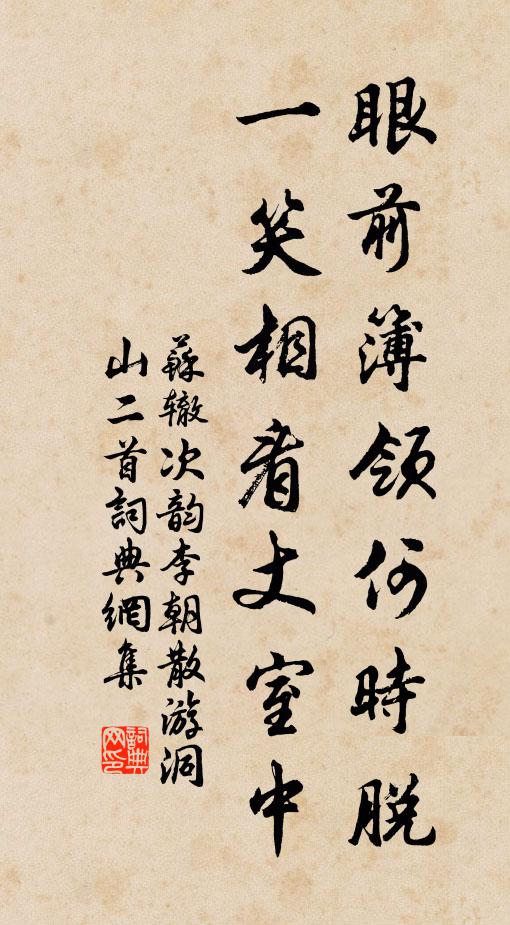 眼前簿领何時脱
一笑相看丈室中
蘇辙次韵李朝散游洞
山二首詞典網集
詞典网印